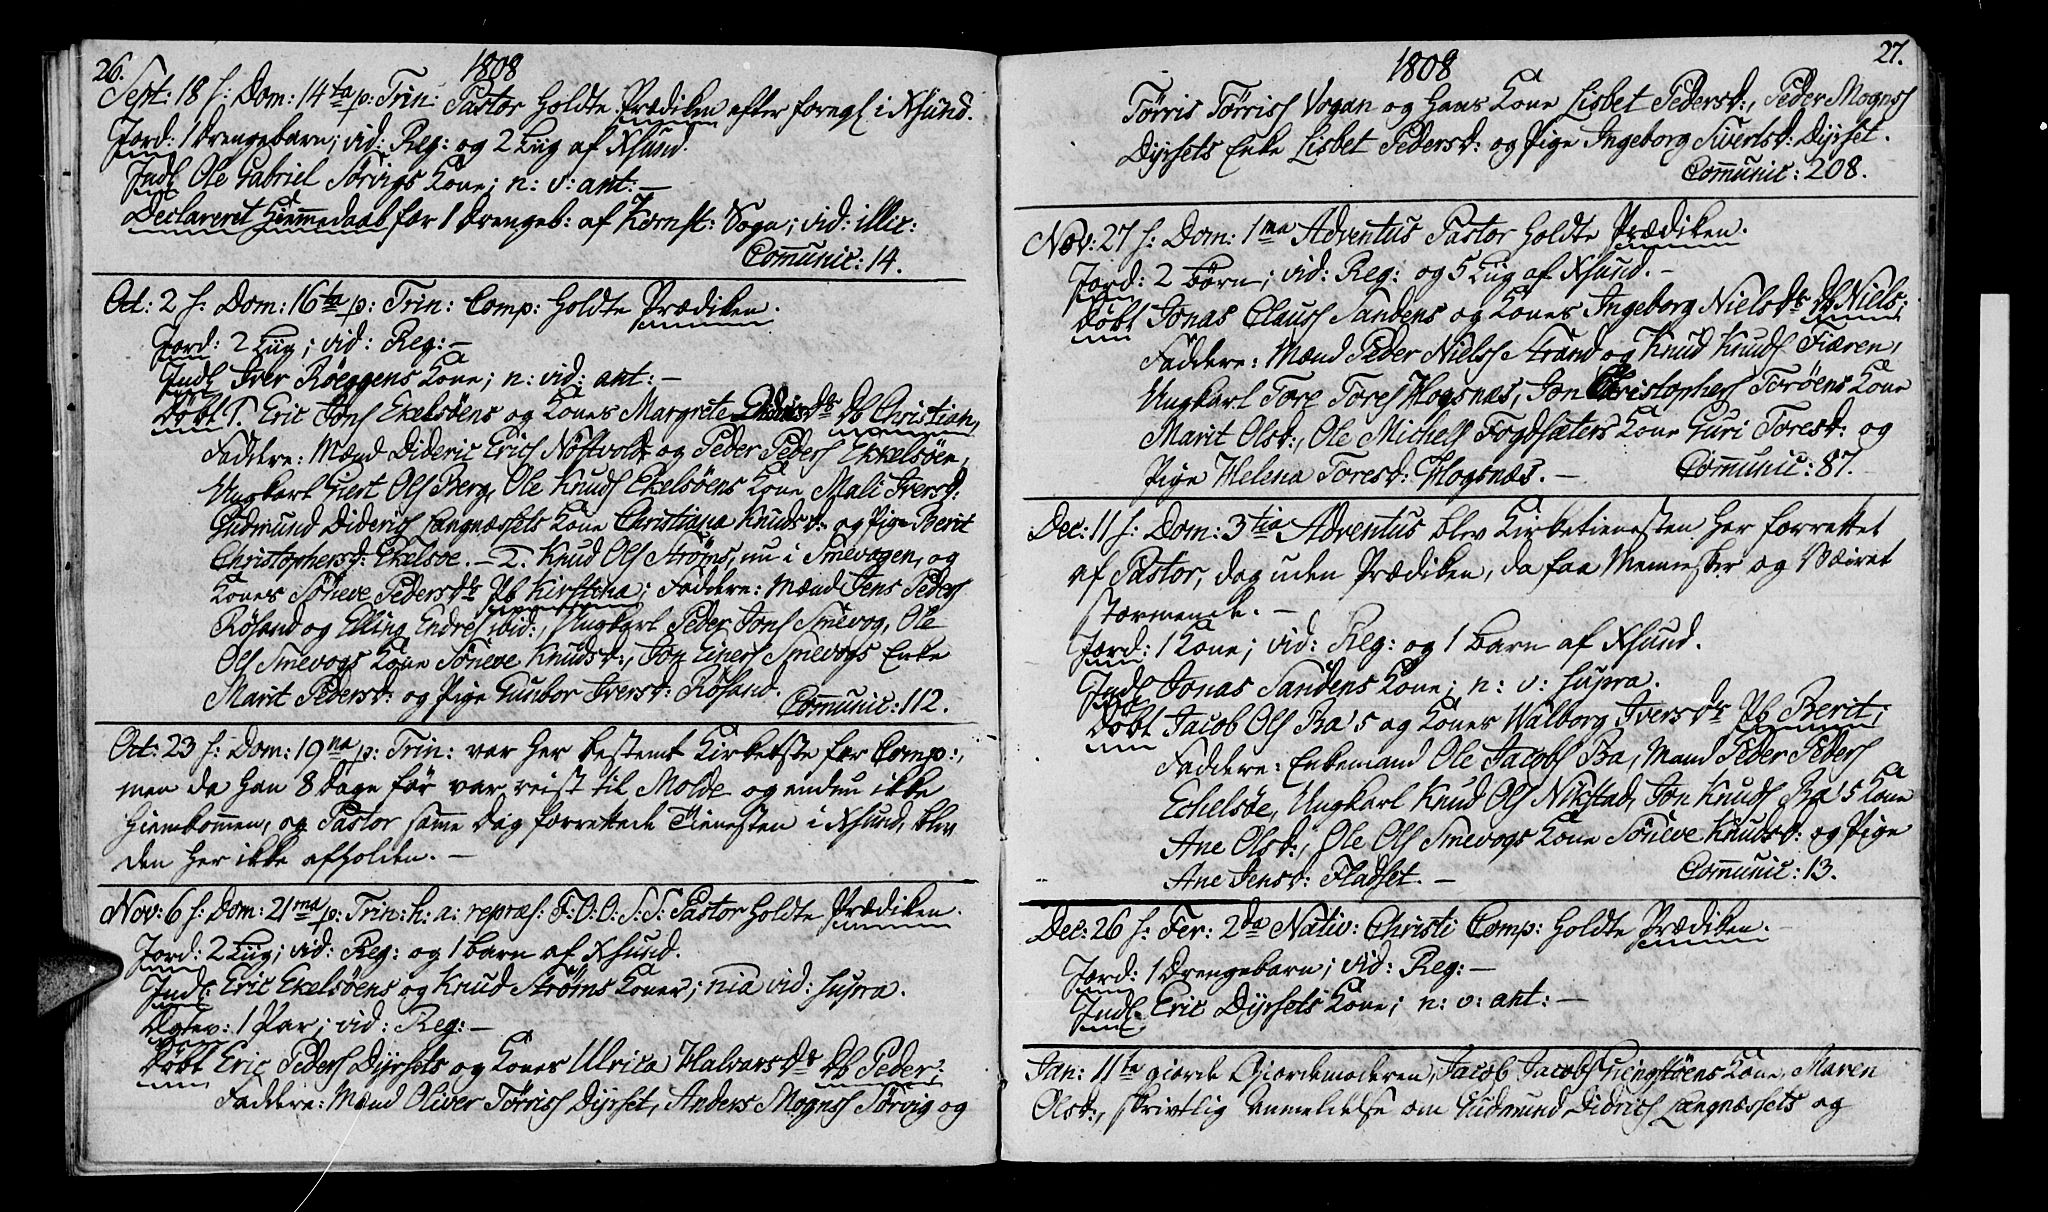 26.
1808
Sept: 18 f: Dom: 14ta p: Trin: Pastor holdte Prædiken efter foregl i Xsund.
Jord: 1 Drengebarn; vid: Reg: og 2 Liig af Xsund.
Indl Ole Gabriel Sørvigs Kone; n: v: ant: —
Declareret Hiemmedaab for 1 Drengeb: af Kornst: Sogn; vid: illic:
Communic: 14.
Oct: 2 f: Dom: 16ta p: Trin: Comp: holdte Prædiken.
Jord: 2 Liig; vid: Reg: —
Indl Iver Røeggens Kone; n: vid: ant: —
Døbt 1. Eric Jons Ekelsöens og Kones Margrete Db Christian,
Faddere: Mænd Dideric Erics Nöstvold og Peder Peders Ekkelsöen,
Ungkarl Giert Ols Berg, Ole Knuds Ekelsöens Kone Mali Iversd:
Gudmund Diderics Langnæssets Kone Christiana Knudsd: og Pige Berit
Christophersd: Ekelsøe. — 2. Knud Ols Strøms, nu i Smevogen, og
Kones Söneve Pedersdr Pb Kirstena; Faddere: Mænd Jens Peders
Rösand og Elling Endres ibid:, Ungkarl Peder Jons Smevog, Ole
Ols Smevogs Kone Söneve Knudsd:, Jon Einers Smevogs Enke
Marit Pedersd: og Pige Gunbor Iversd: Rösand.
Communic: 112.
Oct: 23 f: Dom: 19na p: Trin: var her bestemt Kirketiste for Comp:,
men da han 8 Dage før var reist til Molde og endnu ikke
hiemkommen, og Pastor samme Dag forrettede Tienesten i Xsund, blev
den her ikke afholden. —
Nov: 6 f: Dom: 21ma p: Trin: h: a: repræs: F: O: O: S: S: Pastor holdte Prædiken.
Jord: 2 Liig; vid: Reg: og 1 Barn af Xsund.
Indl: Eric Ekelsöens og Knud Strøms Koner; nia vid: supra.
Egtev: 1 Par; vid: Reg: —
Døbt Eric Peders Dyrsets og Kones Ulrica Halvarsdr Db Peder;
Faddere: Mænd Oliver Tørris Dyrset, Anders Mogns Sørvig og
27.
1808
Tørris Tørris Vogan og hans Kone Lisbet Pedersd:, Peder Mogns
Dyrsets Enke Lisbet Pedersd: og Pige Ingeborg Siverlsd: Dyrset.
Communic: 208.
Nov: 27 f: Dom: 1ma Adventus Pastor holdte Prædiken.
Jord: 2 Børn; vid: Reg: og 5 Liig af Xsund. —
Døbt Jonas Claus Sandens og Kones Ingeborg Nielsdr Db Niels;
Faddere: Mænd Peder Niels Strand og Knud Knuds Fiæren,
Ungkarl Tore Tores Hogsnæs, Jon Christophers Torøens Kone
Marit Olsd:, Ole Michells Fogdsæters Kone Guri Toresd: og
Pige Helena Toresd: Hogsnæs. —
Communic: 87.
Dec: 11 f: Dom: 3tia Adventus blev Kirketienesten her forrettet
af Pastor, dog uden Prædiken, da faa Mennesker og Væiret
stormende. —
Jord: 1 Kone; vid: Reg: og 1 Barn af Xsund.
Indl Jonas Sandens Kone; n: v: supra.
Døbt Jacob Ols Ba's og Kones Walborg Iversdr Pb Berit;
Faddere: Enkemand Ole Jacobs Ba, Mand Peder Peders
Echelsøe, Ungkarl Knud Ols Nikstad, Jon Knuds Ba's Kone
Ane Olsd:, Ole Ols Smevogs Kone Söneve Knudsd: og Pige
Ane Jensd: Fladset. —
Communic: 13.
Dec: 26 f: Fer: 2da Nativ: Christi Comp: holdte Prædiken. —
Jord: 1 Drengebarn; vid: Reg: —
Indl: Eric Dyrsets Kone; n: v: ant: —
Jan: 11te giorde Giordemoderen, Jacob Jacobs Kone, Maren
Olsd:, skrivtlig Anmeldelse om Gudmund Didrics Langnæssets og